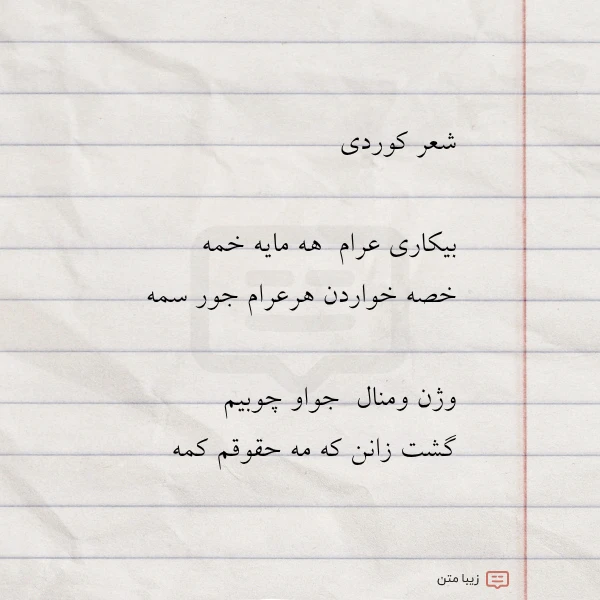 شعر کوردی
بیکاری عرام هه مایه خمه
خصه خواردن هرعرام جور سمه
وژن ومنال جواو چوبیم
گشت زانن که مه حقوقم کمه
زیبا متن